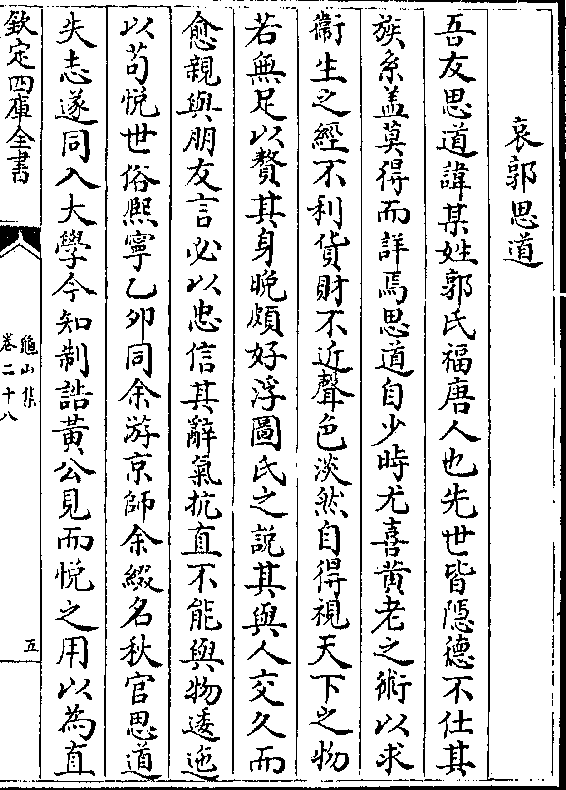 哀郭思道
吾友思道諱某姓郭氏福唐人也先世皆隠德不仕其
族系盖莫得而詳焉思道自少時尤喜黄老之術以求
衞生之經不利貨財不近聲色淡然自得視天下之物
若無足以贅其身晩頗好浮圖氏之說其與人交久而
愈親與朋友言必以忠信其辭氣抗直不能與物逶迤
以苟悅世俗熙寧乙夘同余游京師余綴名秋官思道
失志遂同入大學今知制誥黄公見而悅之用以為直
欽定四庫全書
龜山集
卷二十八
五